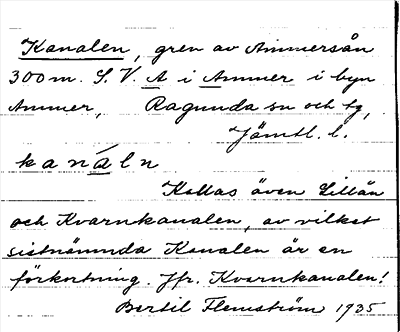 Kanalen, gren av Ammersån
300 m. S.V. A i Ammer i byn
Ammer, Ragunda sn och tg,
Jämtl. l.
kanáln
Kallas även Lillån
och Kvarnkanalen, av vilket
sistnämnda Kanalen är en
förkortning. Jfr. Kvarnkanalen!
Bertil Flemström 1935